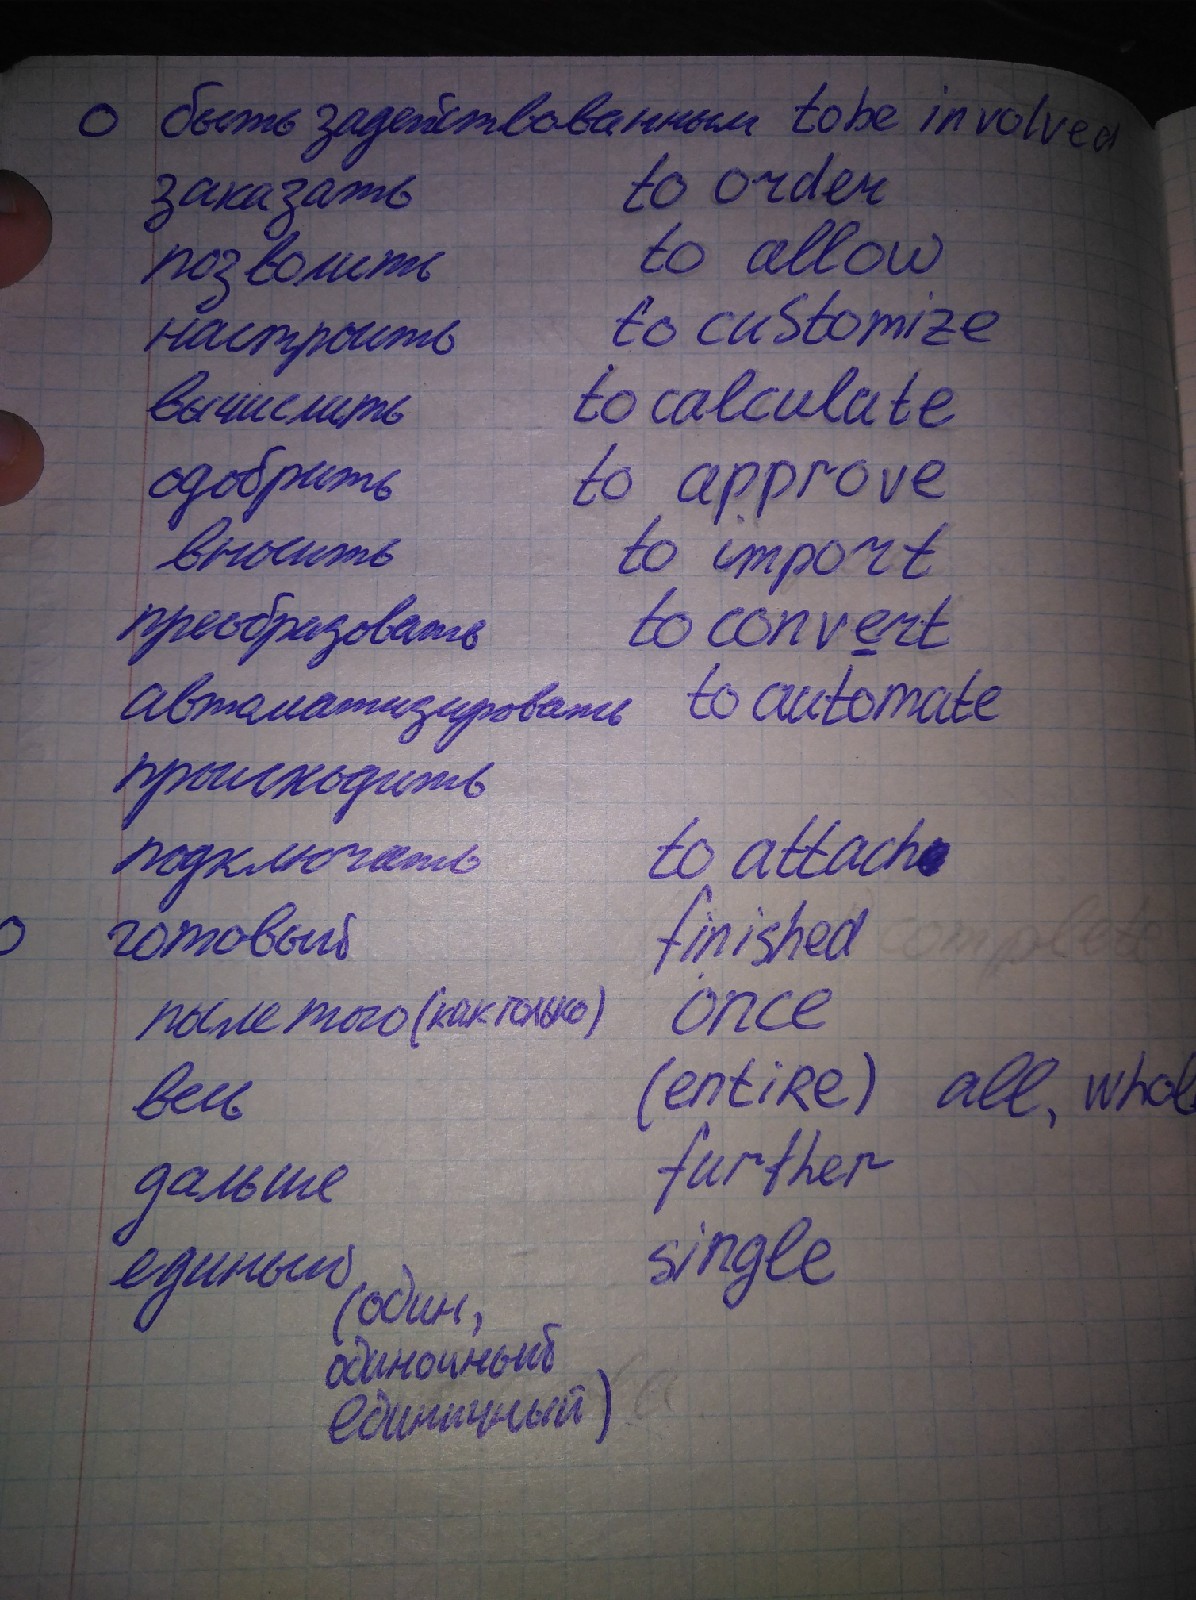 быть задействованным to be involved
заказать to order
позволить to allow
настроить to customize
вычислить to calculate
одобрить to approve
вносить to import
преобразовать to convert
автоматизировать to automate
происходить
подключать to attach
готовый finished complete
после того (как только) once
весь (entire) all, whole
дальше further
единый single
(один,
одиночный
единичный)